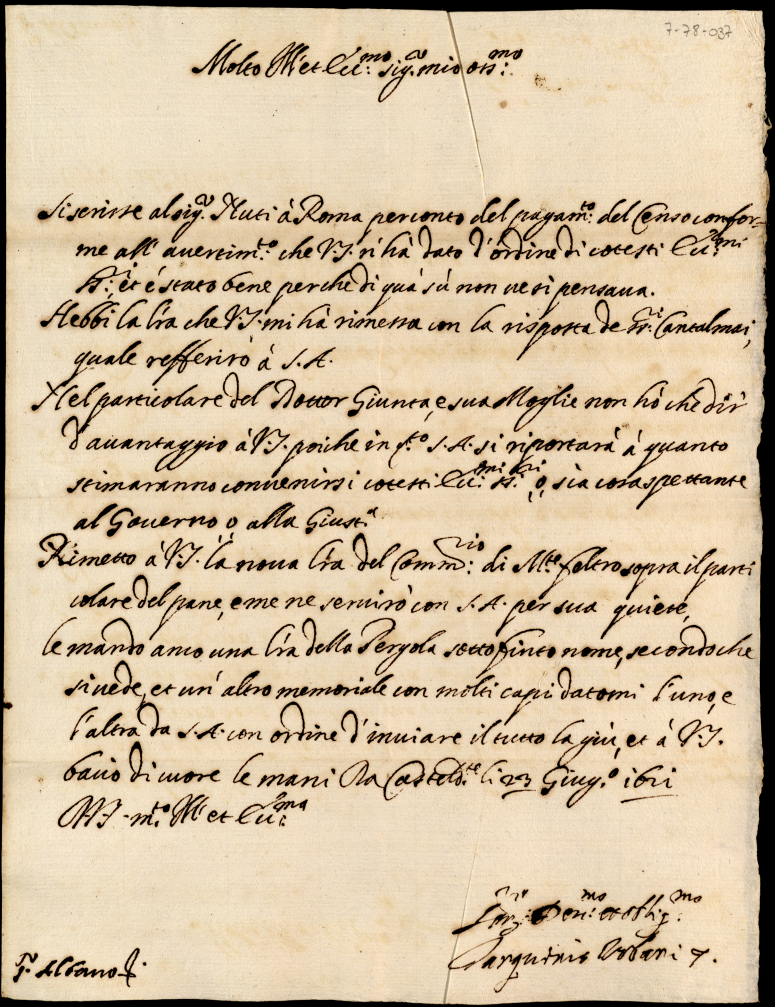 7-78-037
Molto Ill.re et Ecc.mo sig.r mio oss.mo
Si scrisse al sig.r Nuti à Roma per conto del pagam.to del Censo confor-
me all' avertim.to che V.S. n' hà dato d'ordine di cotesti Ecc.mi
SS.ri et é stato bene perche di quà sù non ve si pensava.
Hebbi la l'ra che V.S. mi hà rimessa con la risposta de SS.ri Cantalmai,
quale refferirò à S.A.
Nel particolare del Dottor Giunta, e sua Moglie non hò che dir
d'avantaggio à V.S. poiche in q.to S.A. si riportarà à quanto
stimaranno convenirsi cotesti Ecc.mi SS.ri, ò, sia cosa spettante
al Governo, ò alla Giust.a
Rimetto à V.S. la nova l'ra del Comm.rio di M.te feltro sopra il parti
colare del pane, e me ne servirò con S.A. per sua quiete,
le mando anco una l'ra della Pergola sotto finto nome, secondo che
si vede, et un' altro memoriale con molti capi datomi l'uno, e
l'altra da S.A. con ordine d'inviare il tutto la giù, et à V.S.
bacio di cuore le mani Da Casteld.te li 23 Giug.o 1621
D V.S. m.to Ill.re et Ecc.ma
Ser.re Dev.mo et obblig.mo
Tarquinio Urbani
S.r Albano